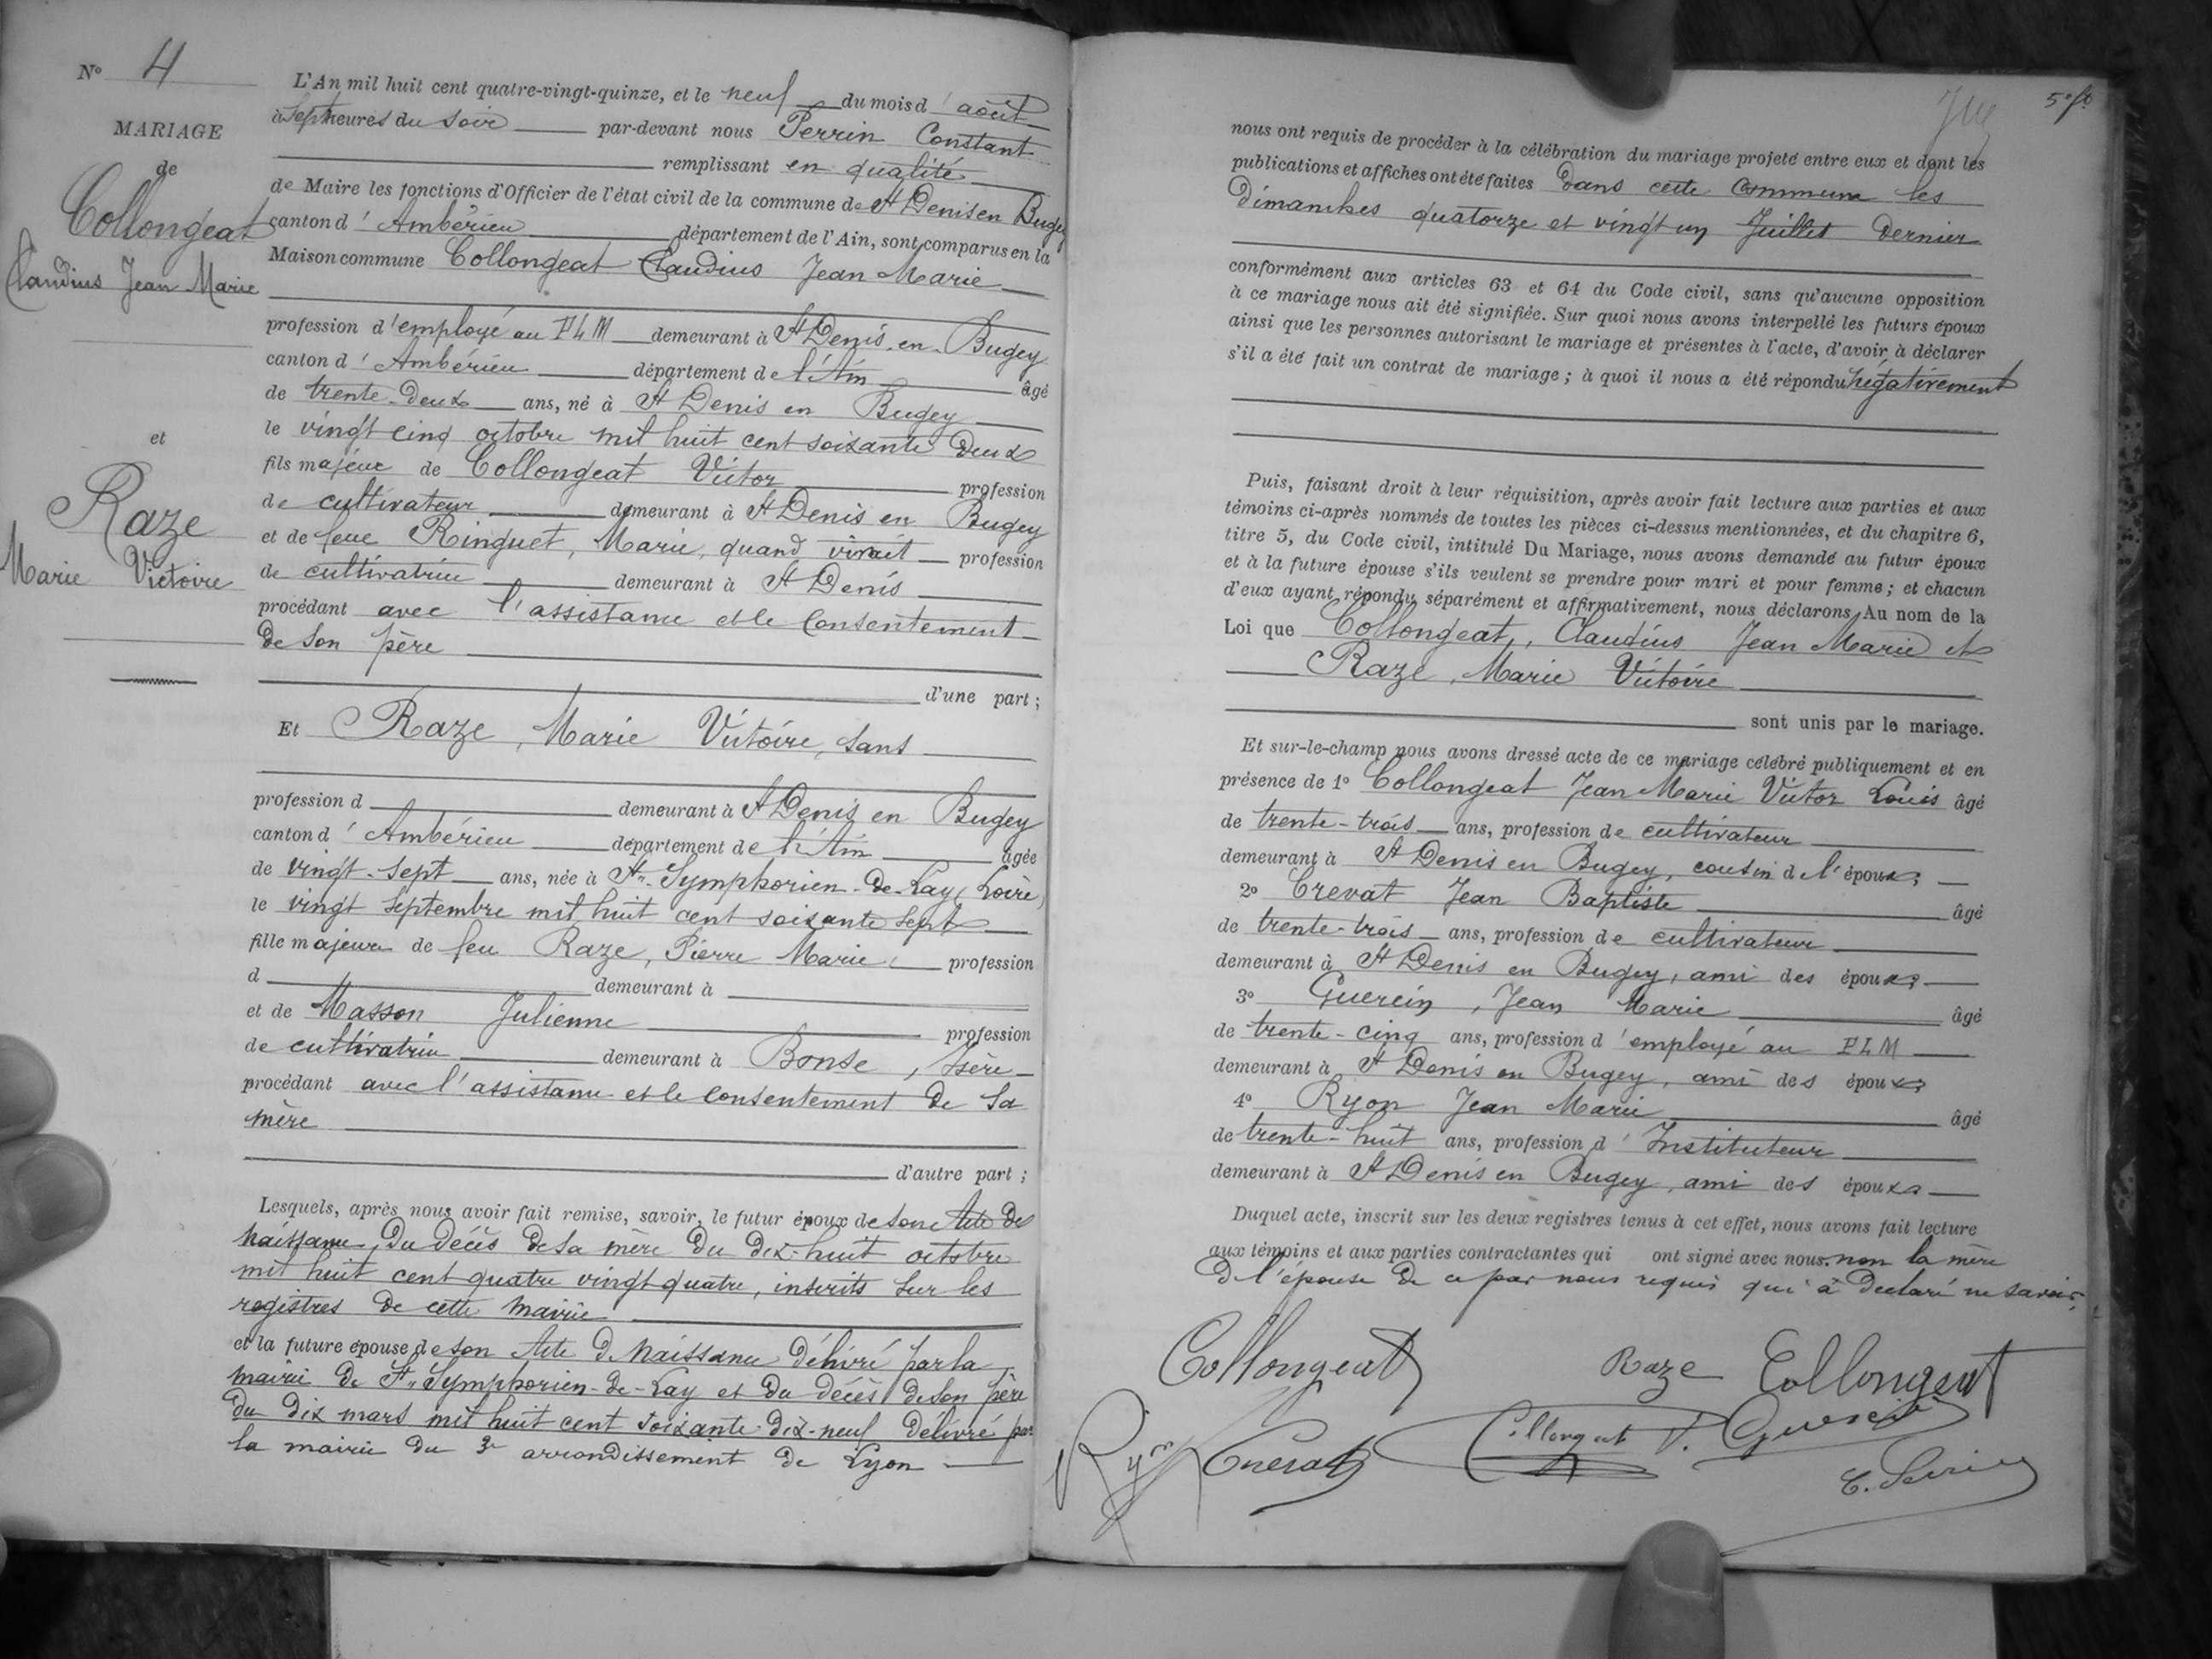 N° 4
MARIAGE
de
Collongeat
Claudius Jean Marie
et
Raze
Marie Victoire
L'An mil huit cent quatre-vingt-quinze, et le neuf du mois d'août
à Sept heures du soir par-devant nous Perrin Constant
remplissant en qualité
de Maire les fonctions d'Officier de l'état civil de la commune de St Denis en Bugey
canton d'Ambérieu département de l'Ain, sont comparus en la
Maison commune Collongeat Claudius Jean Marie
profession d'employé au PLM demeurant à St Denis-en-Bugey
canton d'Ambérieu département de l'Ain âgé
de trente-deux ans, né à St Denis en Bugey
le vingt cinq octobre mil huit cent soixante deux
fils majeur de Collongeat Victor profession
de cultivateur demeurant à St Denis en Bugey
et de feue Ringuet, Marie, quand vivait profession
de cultivatrice demeurant à St Denis
procédant avec l'assistance et le consentement
de son père
d'une part ;
Et Raze, Marie Victoire, sans
profession d demeurant à St Denis en Bugey
canton d'Ambérieu département de l'Ain âgée
de vingt-sept ans, née à St Symphorien-de-Lay (Loire)
le vingt septembre mil huit cent soixante sept
fille majeure de feu Raze, Pierre Marie profession
d demeurant à
et de Masson Julienne profession
de cultivatrice demeurant à Bonse, Isère
procédant avec l'assistance et le consentement de sa
mère
d'autre part ;
Lesquels, après nous avoir fait remise, savoir, le futur époux de son Acte de
naissance, du décès de sa mère du dix-huit octobre
mil huit cent quatre vingt quatre, inscrits sur les
registres de cette mairie
et la future épouse de son Acte de naissance délivré par la
mairie de St Symphorien-de-Lay et du décès de son père
du dix mars mil huit cent soixante-dix-neuf délivré par
la mairie du 3e arrondissement de Lyon
5e ft
nous ont requis de procéder à la célébration du mariage projeté entre eux et dont les
publications et affiches ont été faites dans cette commune les
dimanches quatorze et vingt un Juillet dernier
conformément aux articles 63 et 64 du Code civil, sans qu'aucune opposition
à ce mariage nous ait été signifiée. Sur quoi nous avons interpellé les futurs époux
ainsi que les personnes autorisant le mariage et présentes à l'acte, d'avoir à déclarer
s'il a été fait un contrat de mariage ; à quoi il nous a été répondu négativement
Puis, faisant droit à leur réquisition, après avoir fait lecture aux parties et aux
témoins ci-après nommés de toutes les pièces ci-dessus mentionnées, et du chapitre 6,
titre 5, du Code civil, intitulé Du Mariage, nous avons demandé au futur époux
et à la future épouse s'ils veulent se prendre pour mari et pour femme ; et chacun
d'eux ayant répondu séparément et affirmativement, nous déclarons Au nom de la
Loi que Collongeat, Claudius Jean Marie et
Raze, Marie Victoire
sont unis par le mariage.
Et sur-le-champ nous avons dressé acte de ce mariage célébré publiquement et en
présence de 1° Collongeat Jean Marie Victor Louis âgé
de trente-trois ans, profession de cultivateur
demeurant à St Denis en Bugey, cousin de l'époux ;
2° Crevat Jean Baptiste âgé
de trente-trois ans, profession de cultivateur
demeurant à St Denis en Bugey, ami des époux ;
3° Guercin, Jean Marie âgé
de trente-cinq ans, profession d'employé au PLM
demeurant à St Denis en Bugey, ami des époux ;
4° Ryon Jean Marie âgé
de trente-huit ans, profession d'Instituteur
demeurant à St Denis en Bugey, ami des époux
Duquel acte, inscrit sur les deux registres tenus à cet effet, nous avons fait lecture
aux témoins et aux parties contractantes qui ont signé avec nous. non la mère
de l'épouse de ce par nous requis qui a déclaré ne savoir.
Collongeat Raze Collongeat
Ryon Crevat Collongeat V. Guercin
C. Perrin